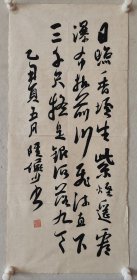 日照香爐生紫烟遥看
瀑布挂前川飛流直下
三千尺疑是銀河落九天
乙丑夏五月陸儼少書